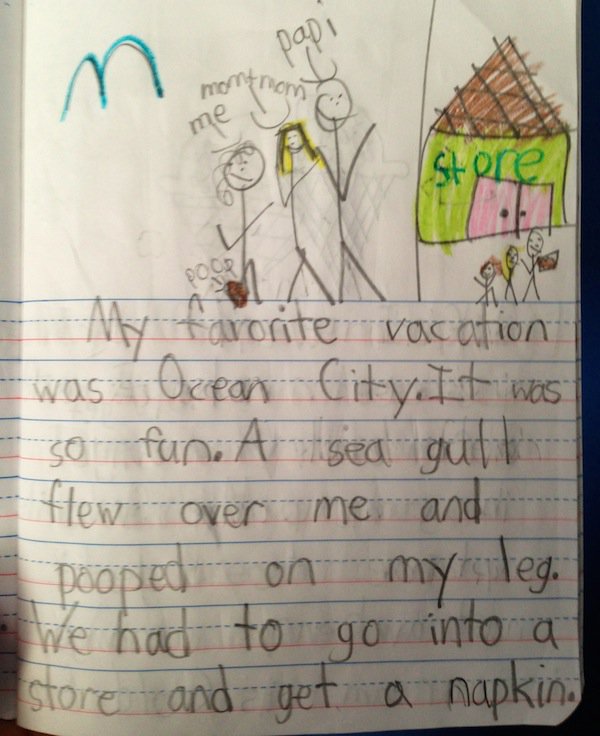 papi
mom+mom
me
store
poop
My favorite vacation
was Ocean City. It was
so fun. A sea gull
flew over me and
pooped on my leg.
We had to go into a
store and get a napkin.